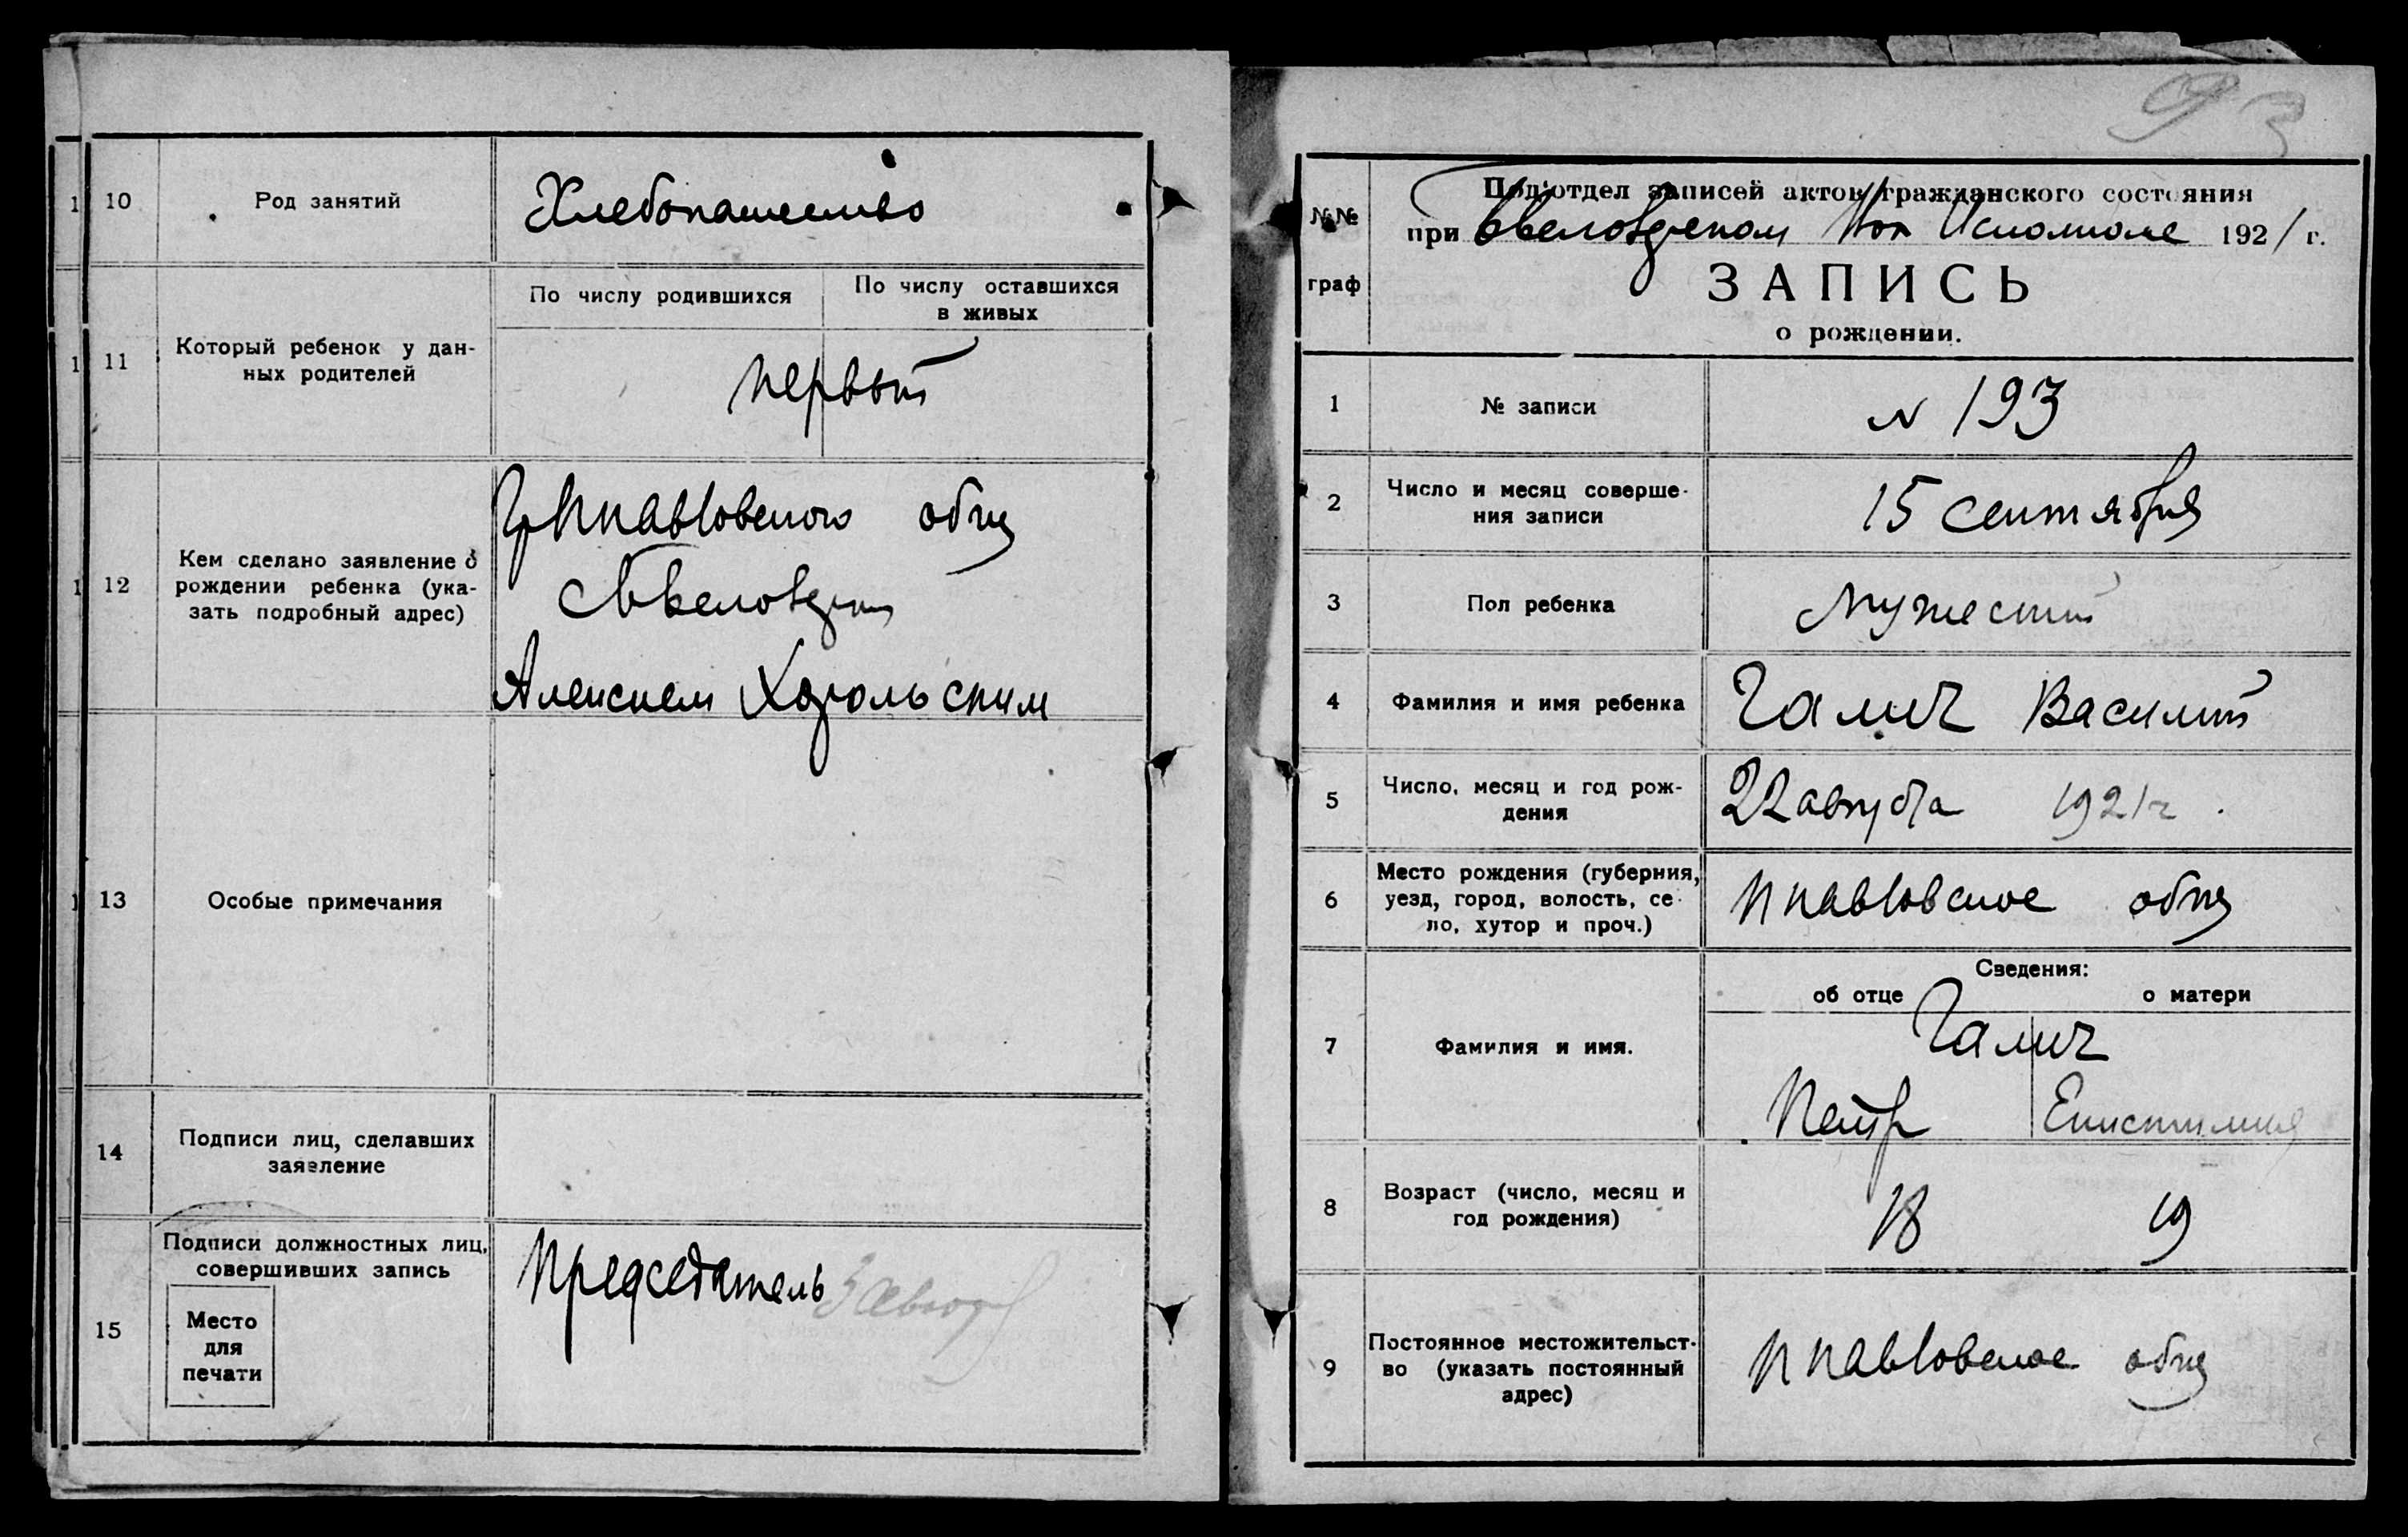 10
Род занятий
Хлебопашество
11
Который ребенок у дан-
ных родителей
По числу родившихся
По числу оставшихся
в живых
первый
12
Кем сделано заявление о
рождении ребенка (ука-
зать подробный адрес)
Гр Ппавловского общ
Алексием Хорольским
13
Особые примечания
14
Подписи лиц, сделавших
заявление
15
Подписи должностных лиц,
совершивших запись
Место
для
печати
Председатель
93
№№
граф
Под'отдел записей актов гражданского состояния
при Исполкоме 1921 г.
ЗАПИСЬ
о рождении.
1
№ записи
N 193
2
Число и месяц соверше-
ния записи
15 сентября
3
Пол ребенка
Мужеский
4
Фамилия и имя ребенка
Галич Василий
5
Число, месяц и год рож-
дения
22 августа 1921 г.
6
Место рождения (губерния,
уезд, город, волость, се-
ло, хутор и проч.)
Ппавловское общ
7
Фамилия и имя.
Сведения:
об отце
о матери
Галич
Петр
Епистимия
8
Возраст (число, месяц и
год рождения)
18
19
9
Постоянное местожительст-
во (указать постоянный
адрес)
Ппавловское общ